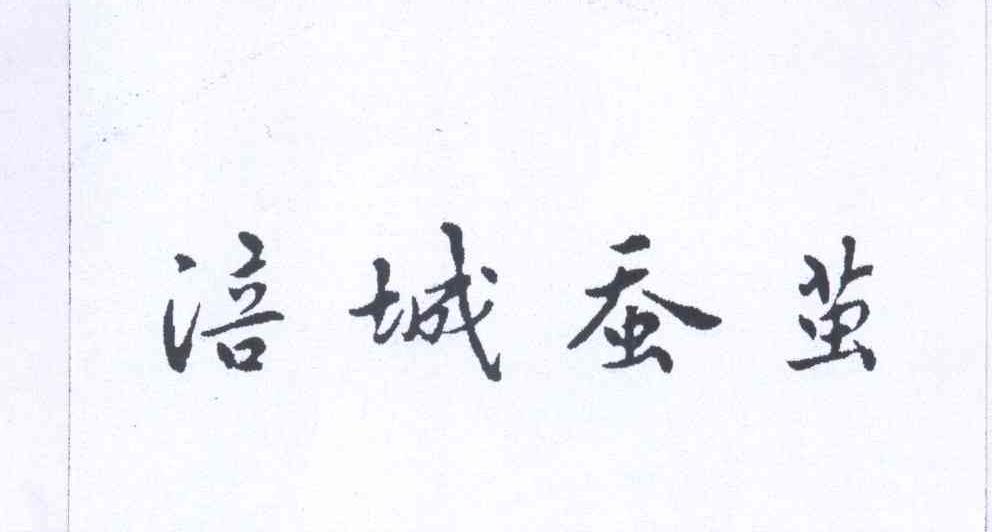 涪城蚕茧